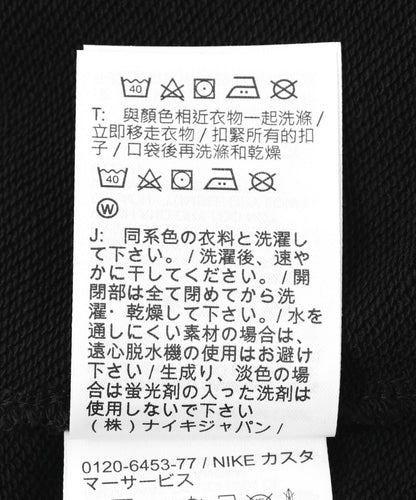 40
T: 與顏色相近衣物一起洗滌 /
立即移走衣物 / 扣緊所有的扣
子 / 口袋後再洗滌和乾燥
40
W
J: 同系色の衣料と洗濯し
て下さい。/ 洗濯後、速や
かに干してください。/ 開
閉部は全て閉めてから洗
濯・乾燥して下さい。/ 水を
通しにくい素材の場合は、
遠心脱水機の使用はお避け
下さい / 生成り、淡色の場
合は蛍光剤の入った洗剤は
使用しないで下さい
(株) ナイキジャパン /
0120-6453-77 / NIKE カスタ
マーサービス